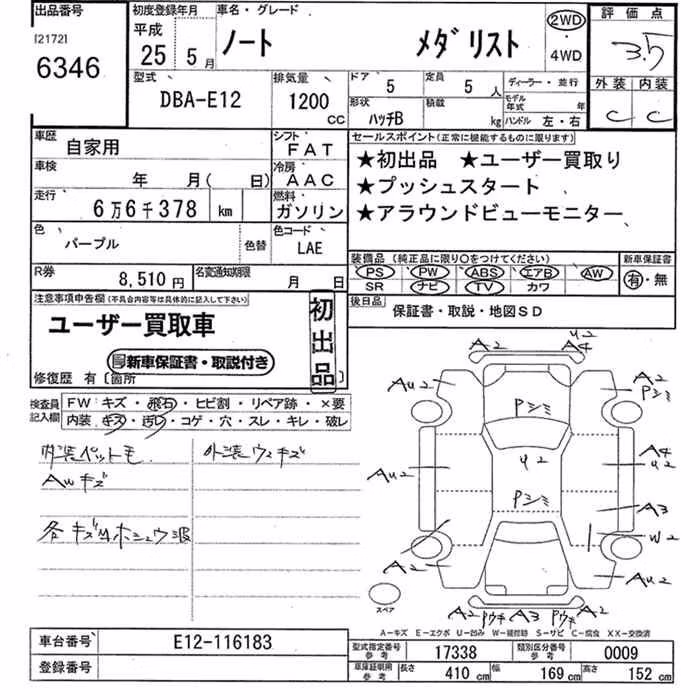 出品番号 [2172] 6346
初度登録年月 平成 25 5月
車名・グレード ノート メダリスト
2WD・4WD
評価点 3.5
外装 内装
C C
型式 DBA-E12
排気量 1200 CC
ドア 5 定員 5人
形状 ハッチB 積載 kg
ディーラー・並行
モデル年式 年
ハンドル 左・右
車歴 自家用
シフト FAT
車検 年 月( 日)
冷房 AAC
走行 6万6千378 km
燃料 ガソリン
色 パープル 色替
色コード LAE
R券 8,510円
名変通知期限 月 日
セールスポイント(正常に機能するものに限ります)
★初出品 ★ユーザー買取り
★プッシュスタート
★アラウンドビューモニター
装備品(純正品に限り○をつけてください)
PS PW ABS エアB AW
SR ナビ TV カワ
新車保証書
有・無
後日品 保証書・取説・地図SD
注意事項申告欄(不具合内容等は具体的に記入して下さい)
ユーザー買取車
新車保証書・取説付き
初出品
修復歴 有〔箇所 〕
検査員記入欄
FW キズ・飛石・ヒビ割・リペア跡・×要
内装 キズ・汚レ・コゲ・穴・スレ・キレ・破レ
内装ペットモ 外装ウスキズ
AWキズ
A2 U2 A4
AU2 Pジミ A2 Pジミ
AU2 U2 A4 U2
Pジミ A3
W2
AU2 AU2
スペア
A2 Pウキ A3 Pウキ A2
A-キズ E-エクボ U-凹み W-補修跡 S-サビ C-腐食 XX-交換済
車台番号 E12-116183
登録番号
型式指定番号 参考 17338 類別区分番号 参考 0009
車庫証明用 参考 長さ 410 cm 幅 169 cm 高さ 152 cm